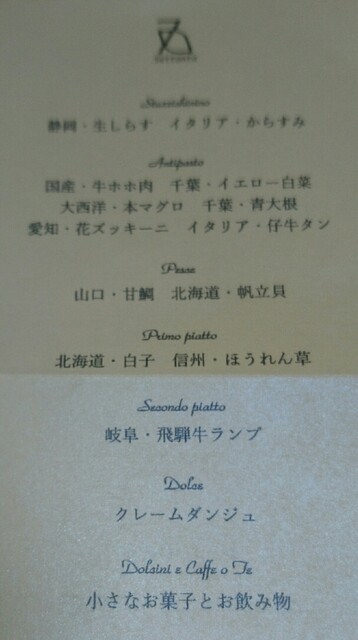 Stuzzichino
静岡・生しらす　イタリア・からすみ
Antipasto
国産・牛ホホ肉　千葉・イエロー白菜
大西洋・本マグロ　千葉・青大根
愛知・花ズッキーニ　イタリア・仔牛タン
Pesce
山口・甘鯛　北海道・帆立貝
Primo piatto
北海道・白子　信州・ほうれん草
Secondo piatto
岐阜・飛騨牛ランプ
Dolce
クレームダンジュ
Dolcini e Caffe o Te
小さなお菓子とお飲み物